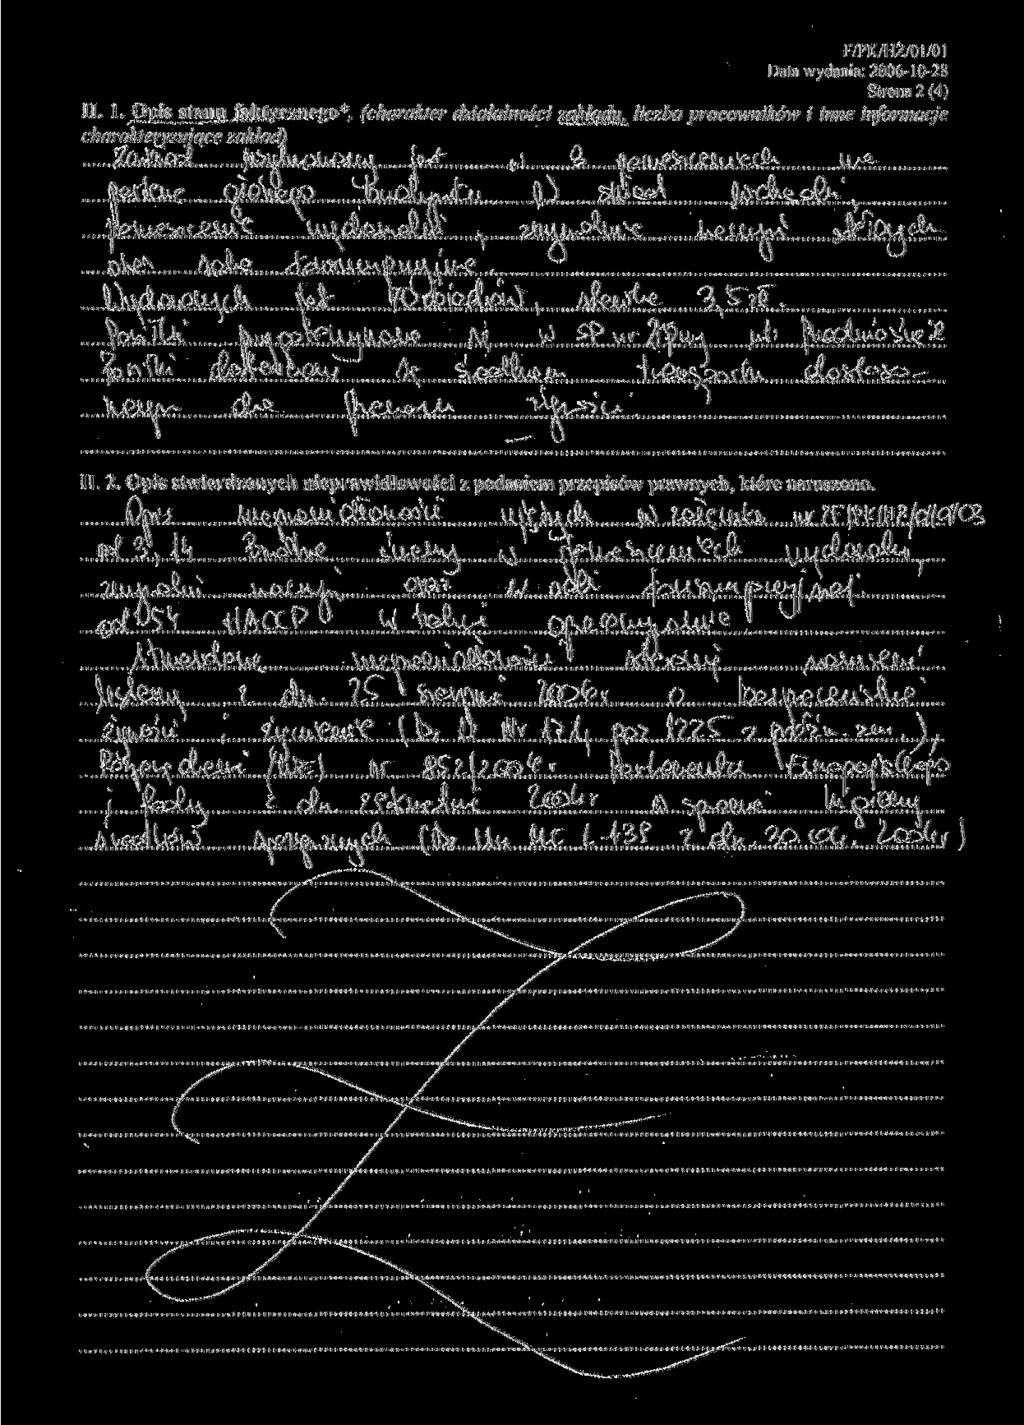 F/PK/HŻ/01/01
Data wydania: 2006-10-28
Strona 2 (4)
II. 1. Opis stanu faktycznego*, (charakter działalności zakładu, liczba pracowników i inne informacje
charakteryzujące zakład)
Zakład jest w 3 pomieszczeniach na
parterze głównego budynku. W skład wchodzi:
pomieszczenie wydawalni, zmywalnia naczyń
oraz sala konsumpcyjna.
Wydawanych jest obiadów, stawka 3,5 zł.
Posiłki przygotowywane są w SP nr przy ul.
Posiłki są środkiem transportu dostoso-
do przewozu żywności
II. 2. Opis stwierdzonych nieprawidłowości z podaniem przepisów prawnych, które naruszono.
Opis nieprawidłowości w załączniku nr
w pomieszczeniach wydawalni,
zmywalni naczyń oraz w sali konsumpcyjnej.
HACCP w
Stwierdzone nieprawidłowości stanowią naruszenie
Ustawy z dn. 25 sierpnia 2006r o bezpieczeństwie
żywności i żywienia (Dz. U. Nr 171, poz 1225 z późn. zm.),
(WE) nr 852/2004r Parlamentu Europejskiego
i Rady z dn. 29 kwietnia 2004r w sprawie higieny
środków spożywczych (Dz. Urz. UE L 139 z dn. 30.04. 2004r)